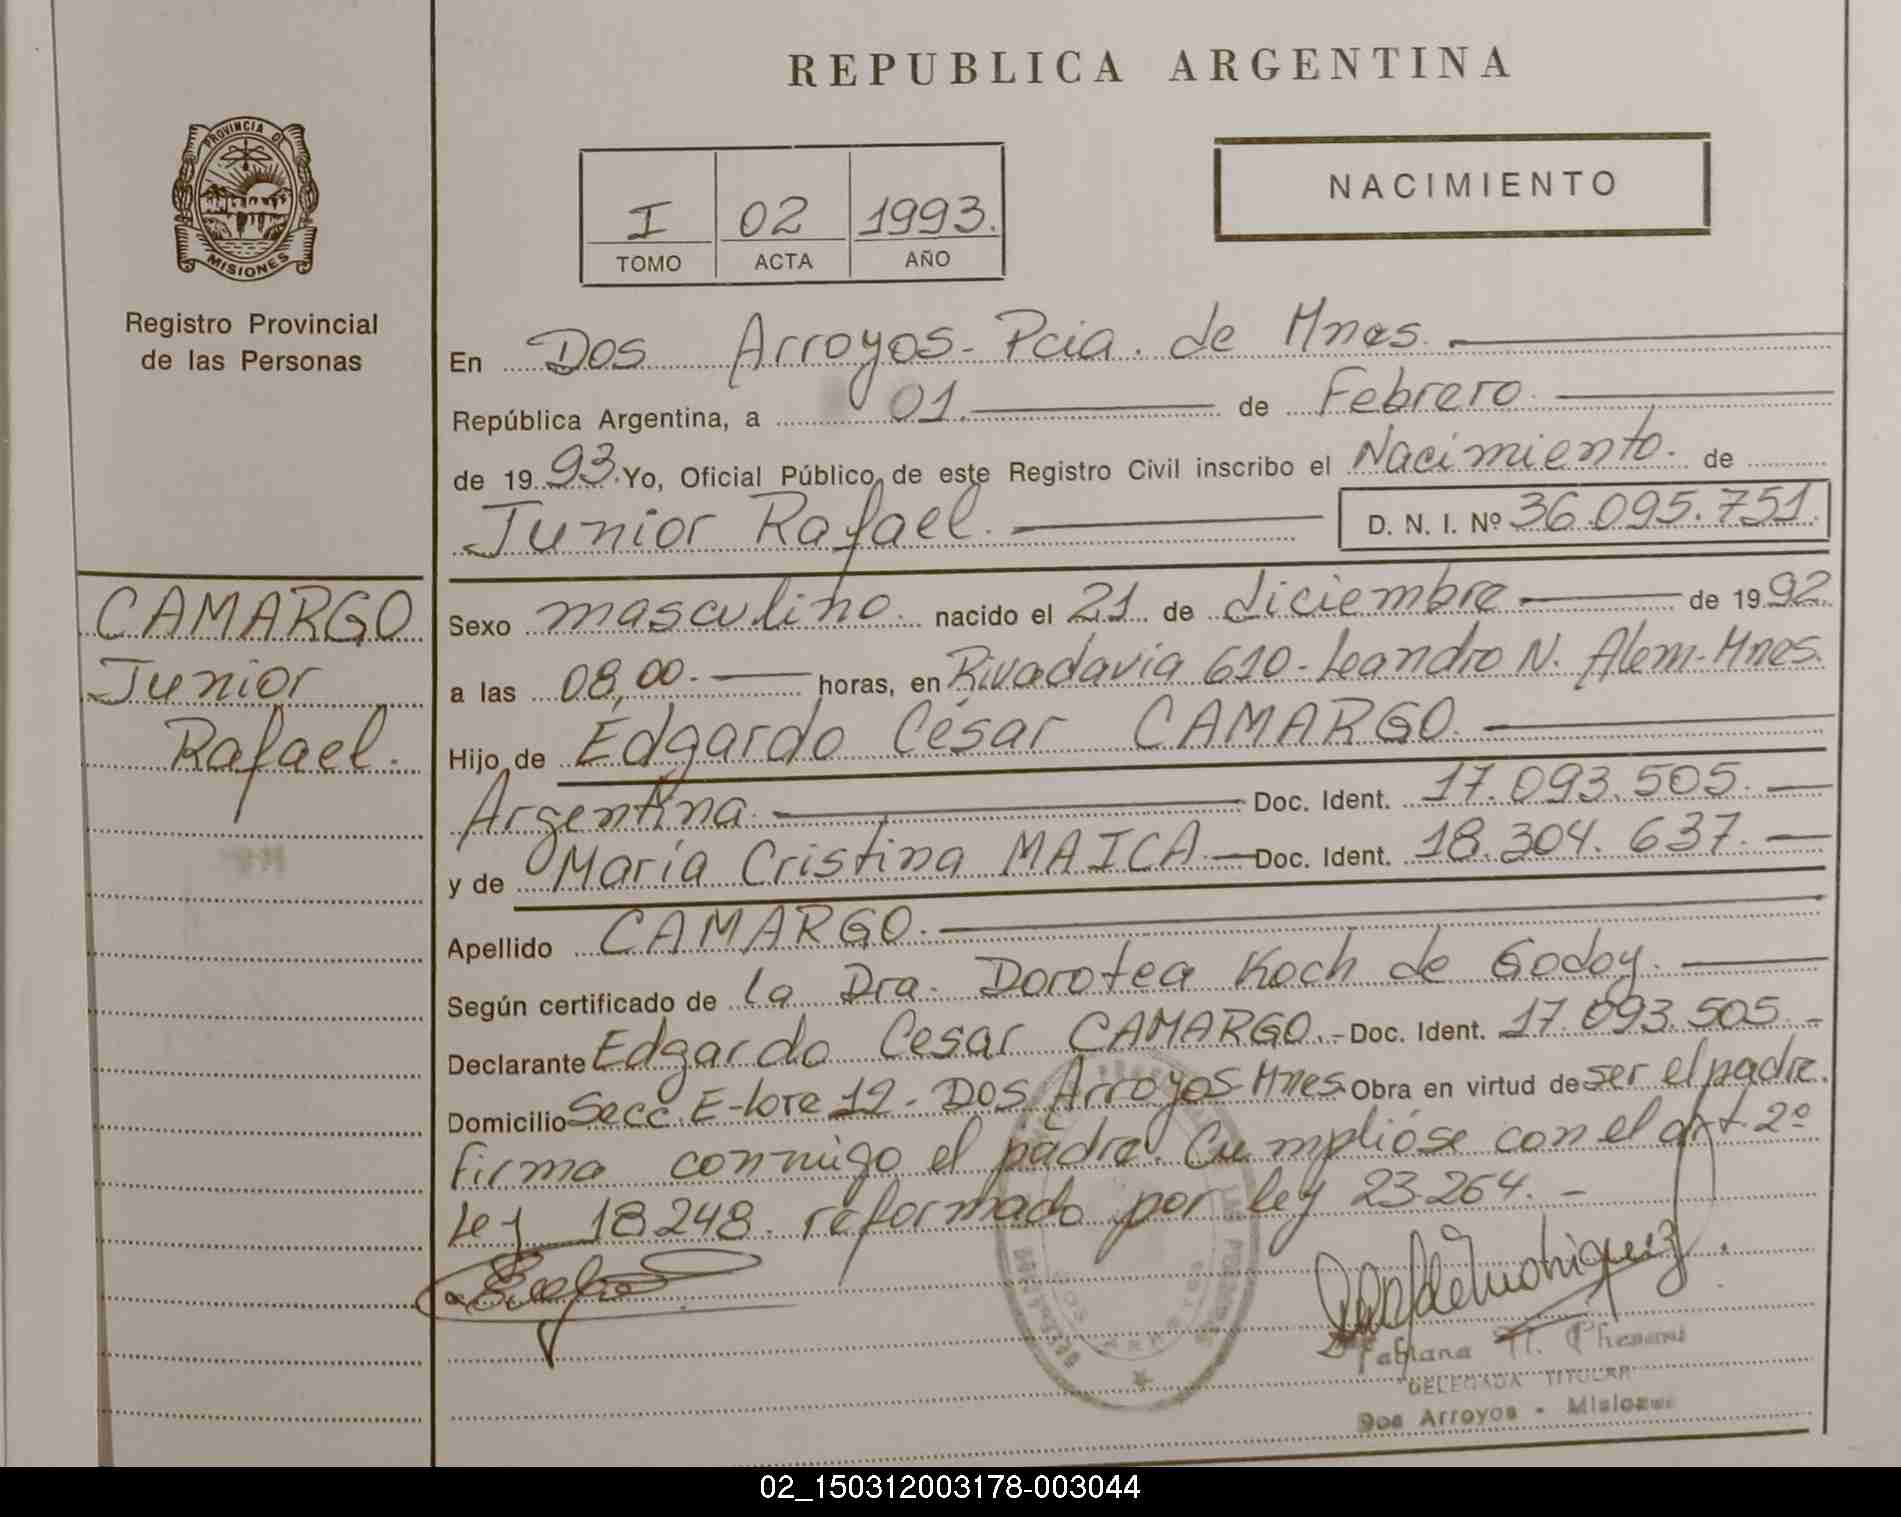 REPUBLICA ARGENTINA
PROVINCIA DE
MISIONES
Registro Provincial
de las Personas
I 02 1993.
TOMO ACTA AÑO
NACIMIENTO
En Dos Arroyos - Pcia. de Mnes.
República Argentina, a 01. de Febrero.
de 19 93. Yo, Oficial Público, de este Registro Civil inscribo el Nacimiento. de
Junior Rafael. D. N. I. Nº 36.095.751.
CAMARGO
Junior
Rafael.
Sexo masculino. nacido el 21 de diciembre de 19 92.
a las 08,00.- horas, en Rivadavia 610 - Leandro N. Alem - Mnes.
Hijo de Edgardo César CAMARGO.
Argentina. Doc. Ident. 17.093.505.-
y de María Cristina MAICA.- Doc. Ident. 18.304.637.-
Apellido CAMARGO.
Según certificado de la Dra. Dorotea Koch de Godoy.
Declarante Edgardo Cesar CAMARGO.- Doc. Ident. 17.093.505.-
Domicilio Secc. E - lote 12 - Dos Arroyos - Mnes. Obra en virtud de ser el padre.
Firma conmigo el padre. Cumplióse con el art. 2º
Ley 18.248. reformado por ley 23.264.-
DELEGADA TITULAR
Dos Arroyos - Misiones
02_150312003178-003044